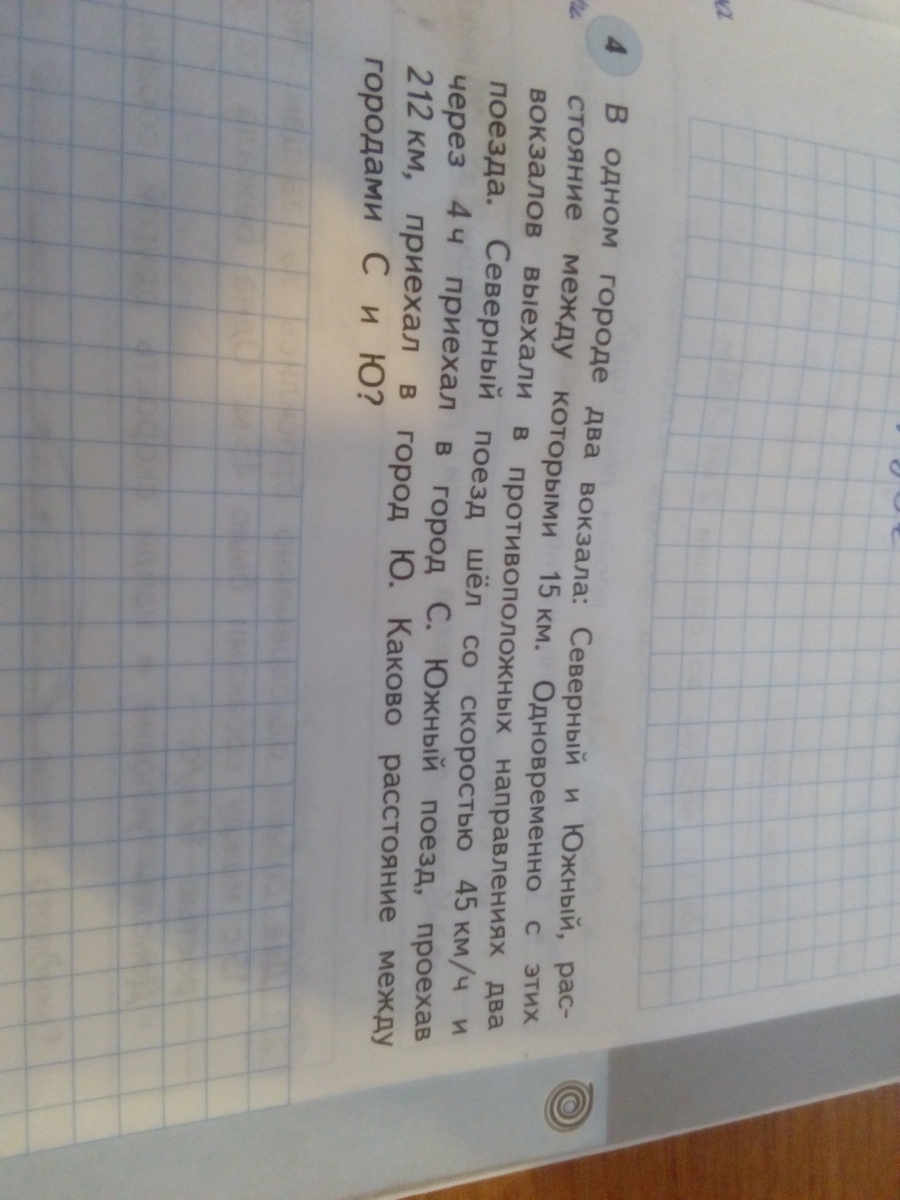 4
В одном городе два вокзала: Северный и Южный, рас-
стояние между которыми 15 км. Одновременно с этих
вокзалов выехали в противоположных направлениях два
поезда. Северный поезд шёл со скоростью 45 км/ч и
через 4 ч приехал в город С. Южный поезд, проехав
212 км, приехал в город Ю. Каково расстояние между
городами С и Ю?